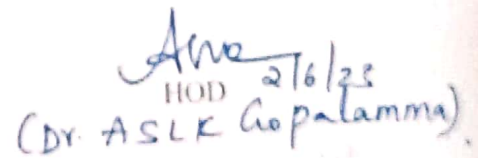 2/6/23
HOD
(Dr. ASLK Gopalamma).